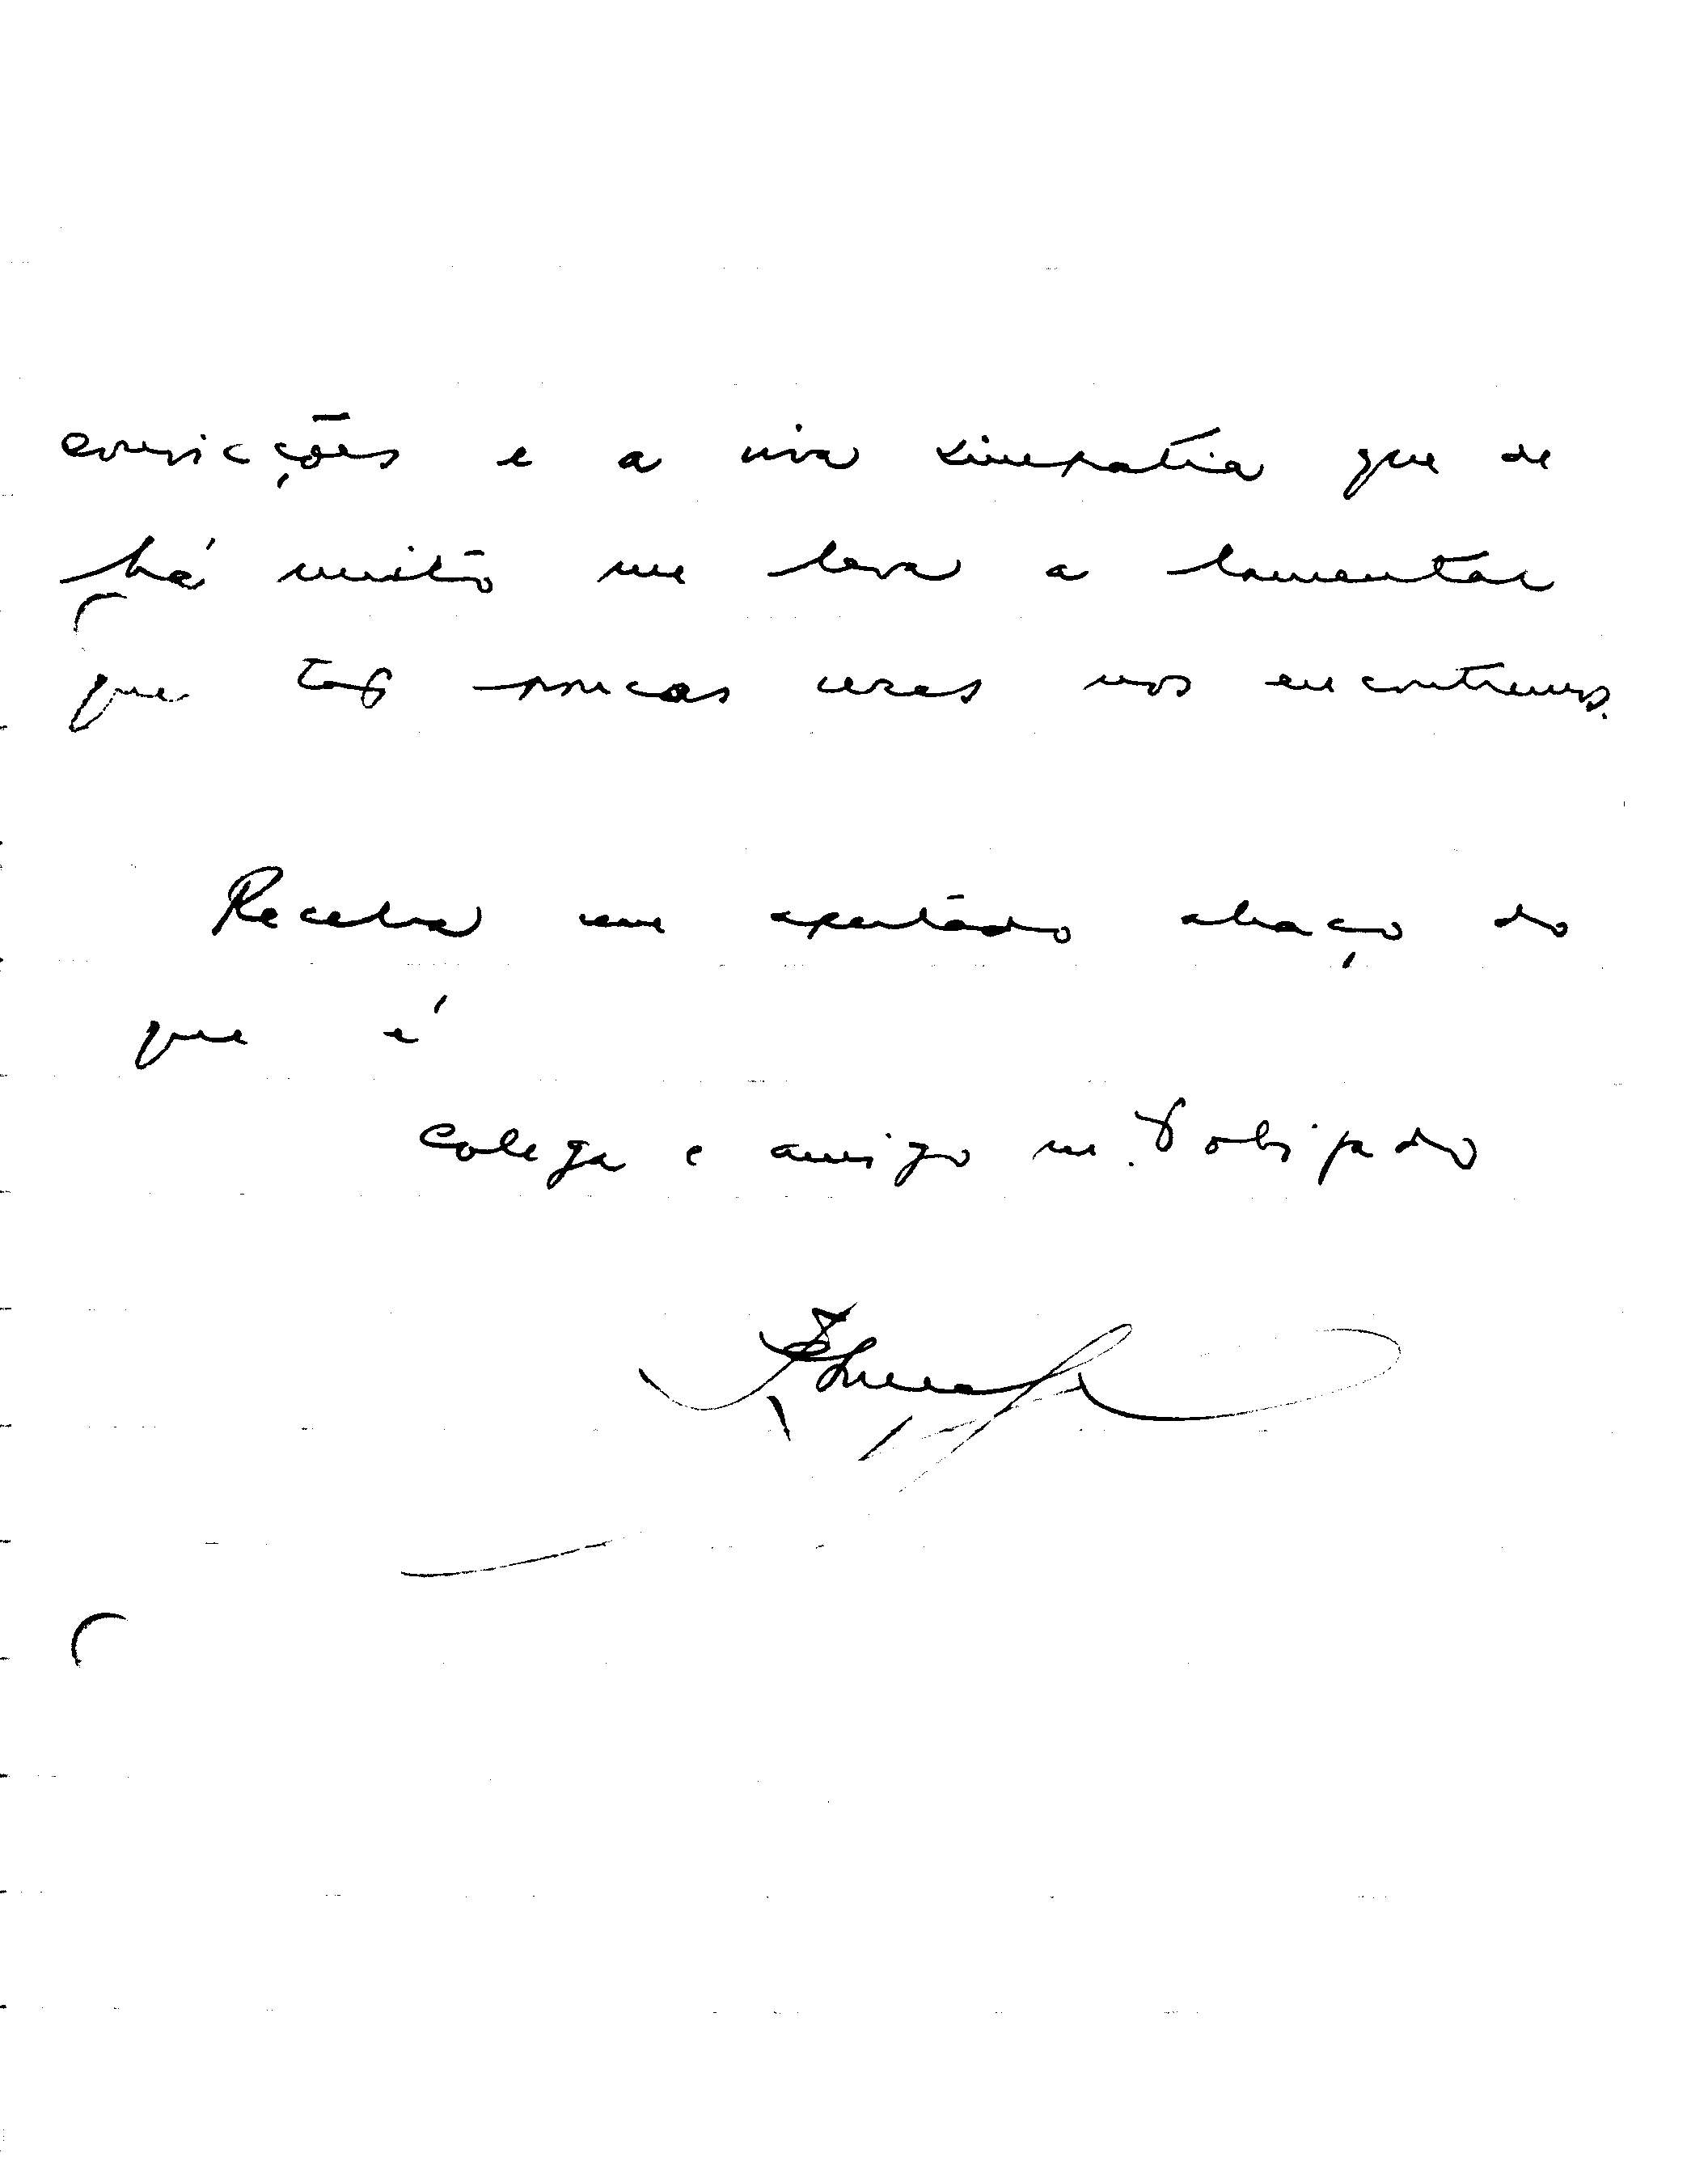 convicções e a viva simpatia que de
há muito me leva a lamentar
que tão poucas vezes nos encontremos.
Receba um apertado abraço do
que é
colega e amigo m.to obrigado